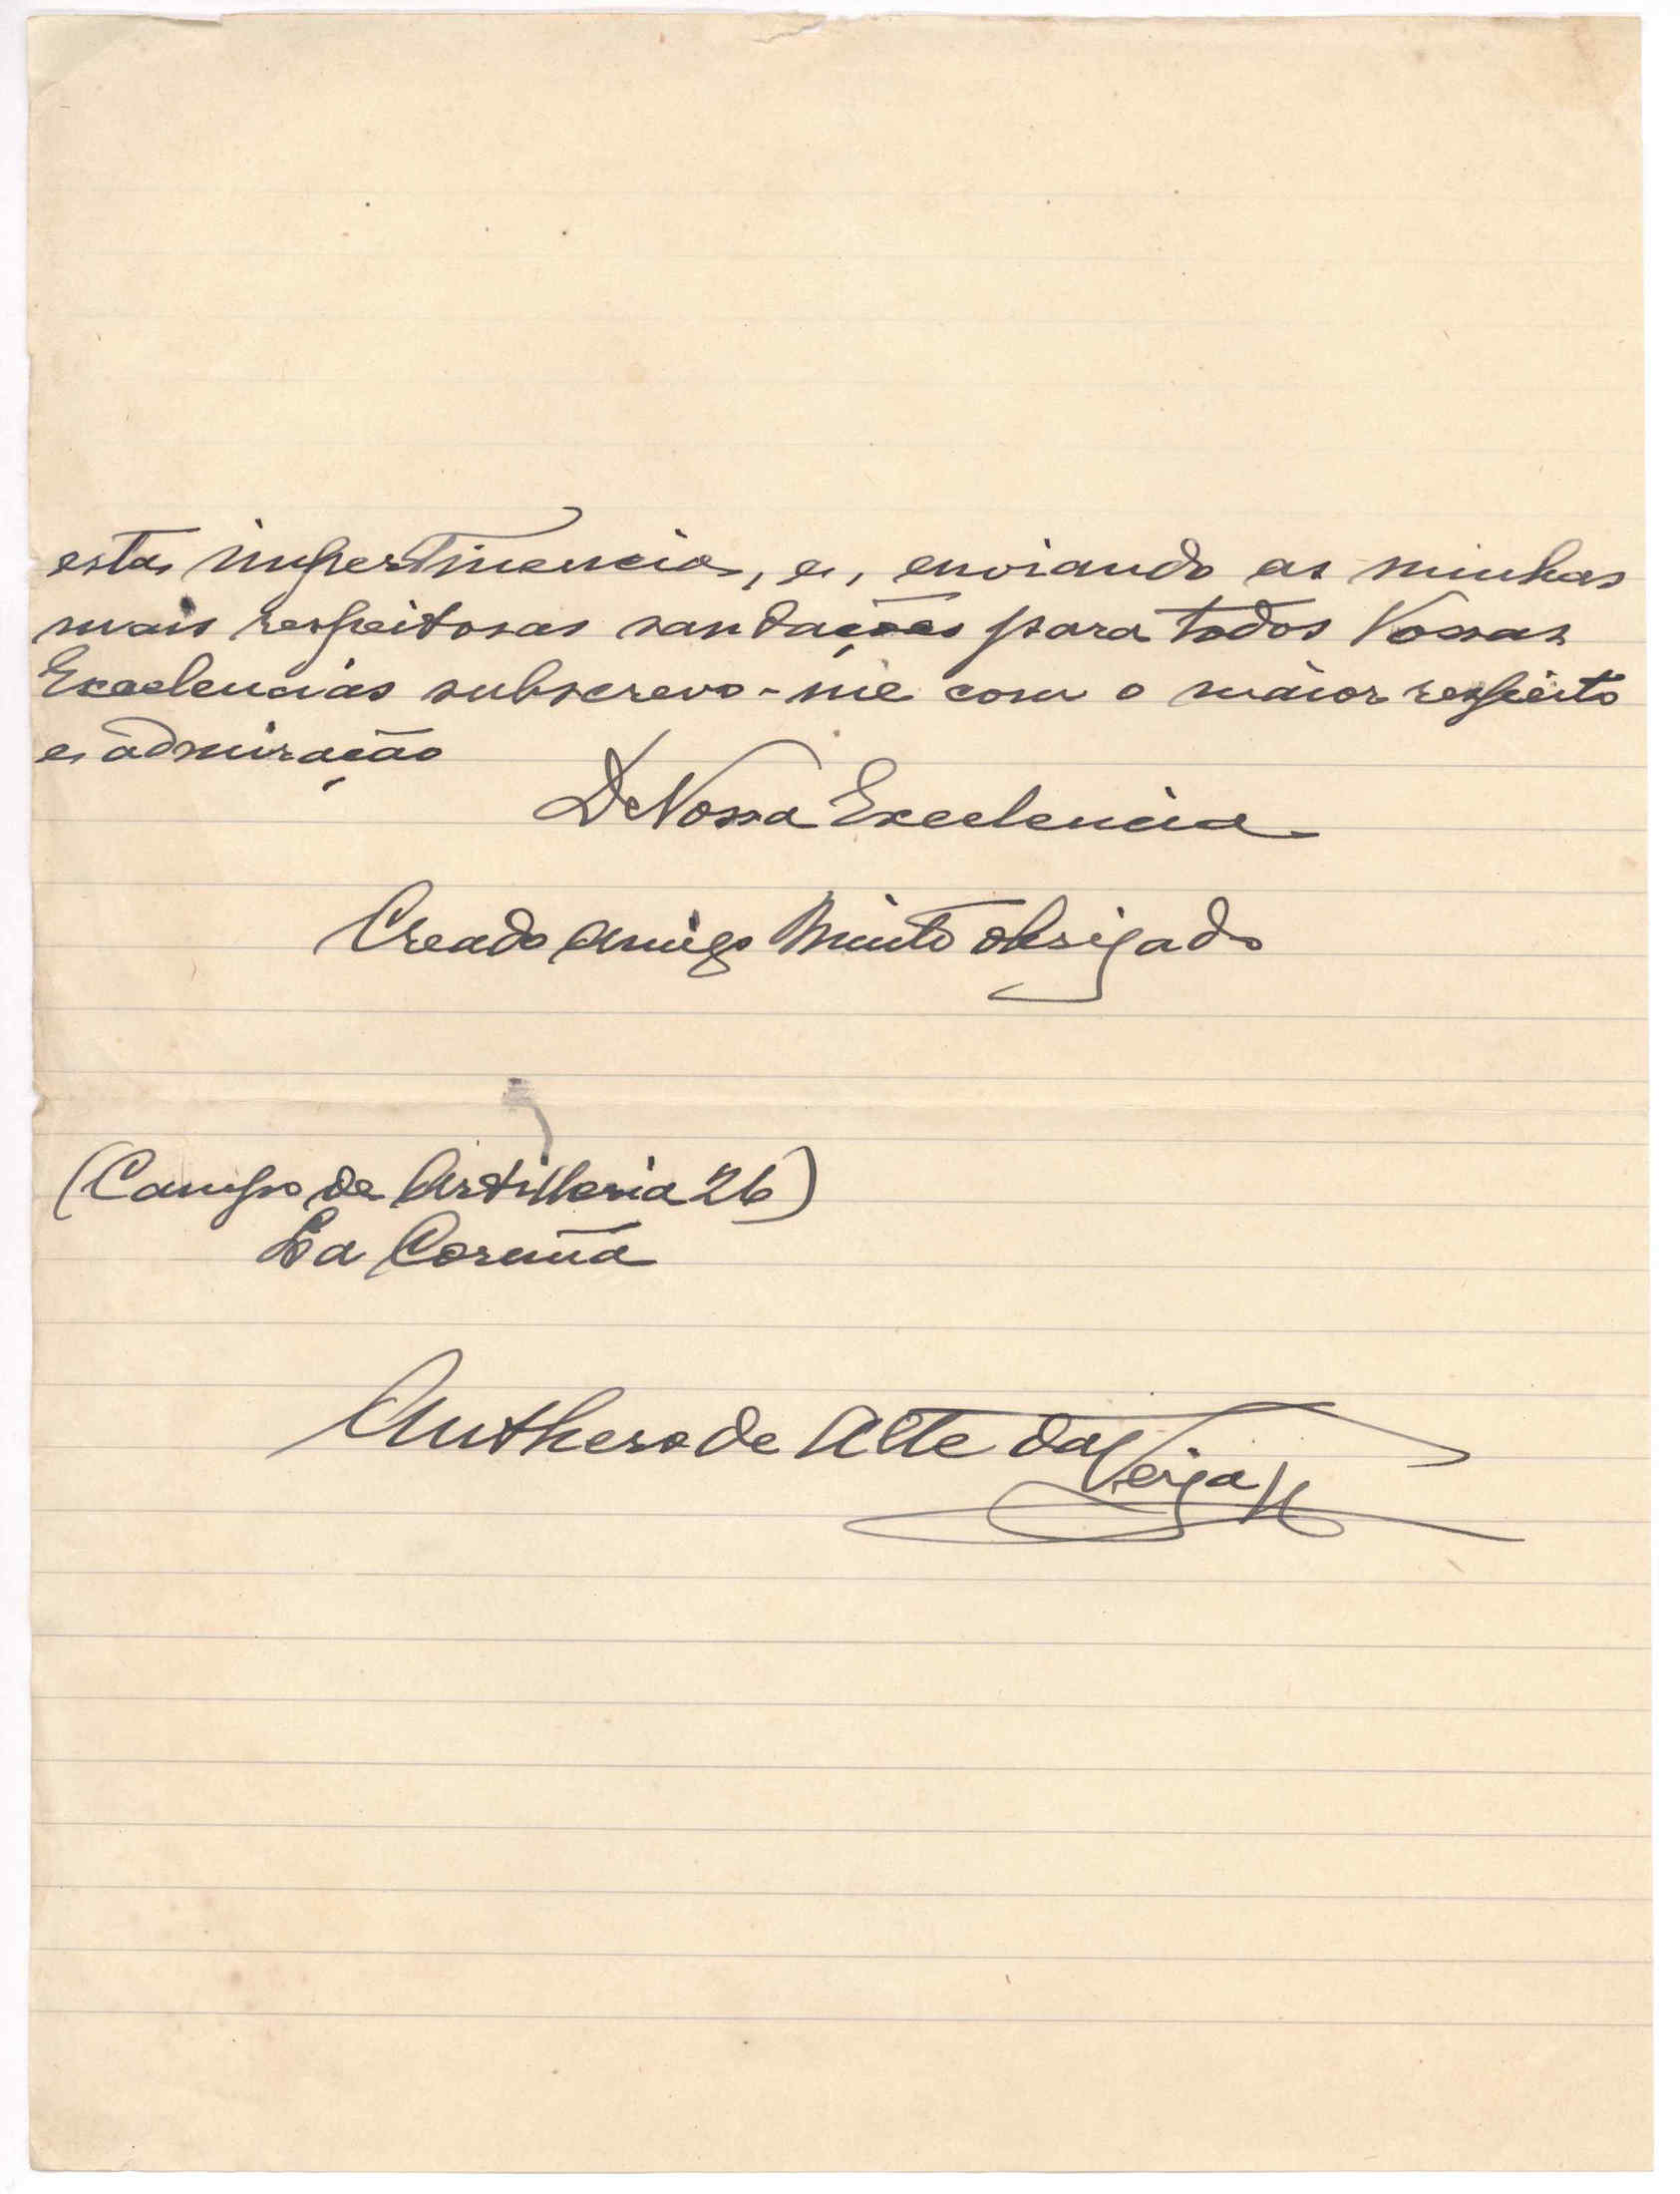 esta impertinencia, e, enviando as minhas
mais respeitosas saudações para todos Vossas
Excelencias subscrevo-me com o maior respeito
e admiração
De Vossa Excelencia
Creado Amigo Muito obrigado
(Campo de Artilleria 26)
La Coruña
Anthero de Alte da Veiga